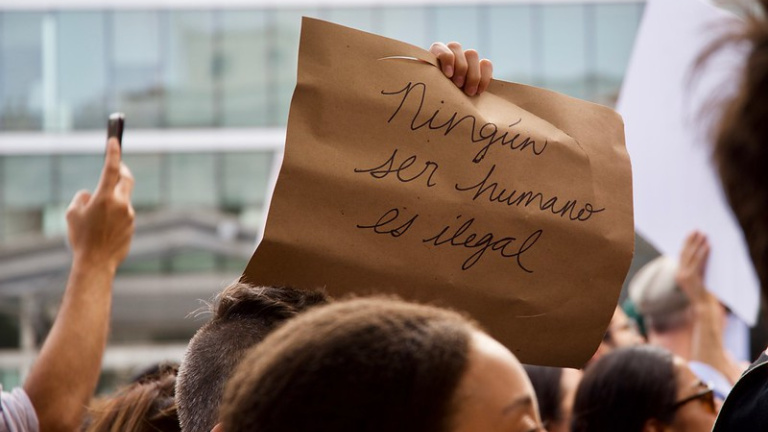 Ningún
ser humano
és ilegal